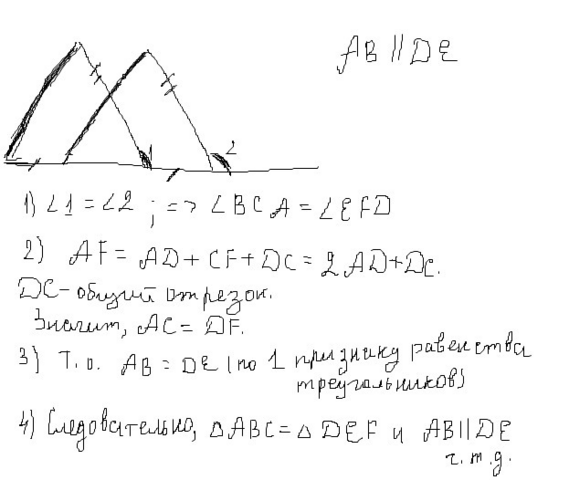 AB || DE
1 2
1) ∠1 = ∠2 ; => ∠BCA = ∠EFD
2) AF = AD + CF + DC = 2AD + DC.
DC - общий отрезок.
Значит, AC = DF.
3) Т.о. AB = DE (по 1 признику равенства
треугольников)
4) Следовательно, △ABC = △DEF и AB || DE
ч.т.д.